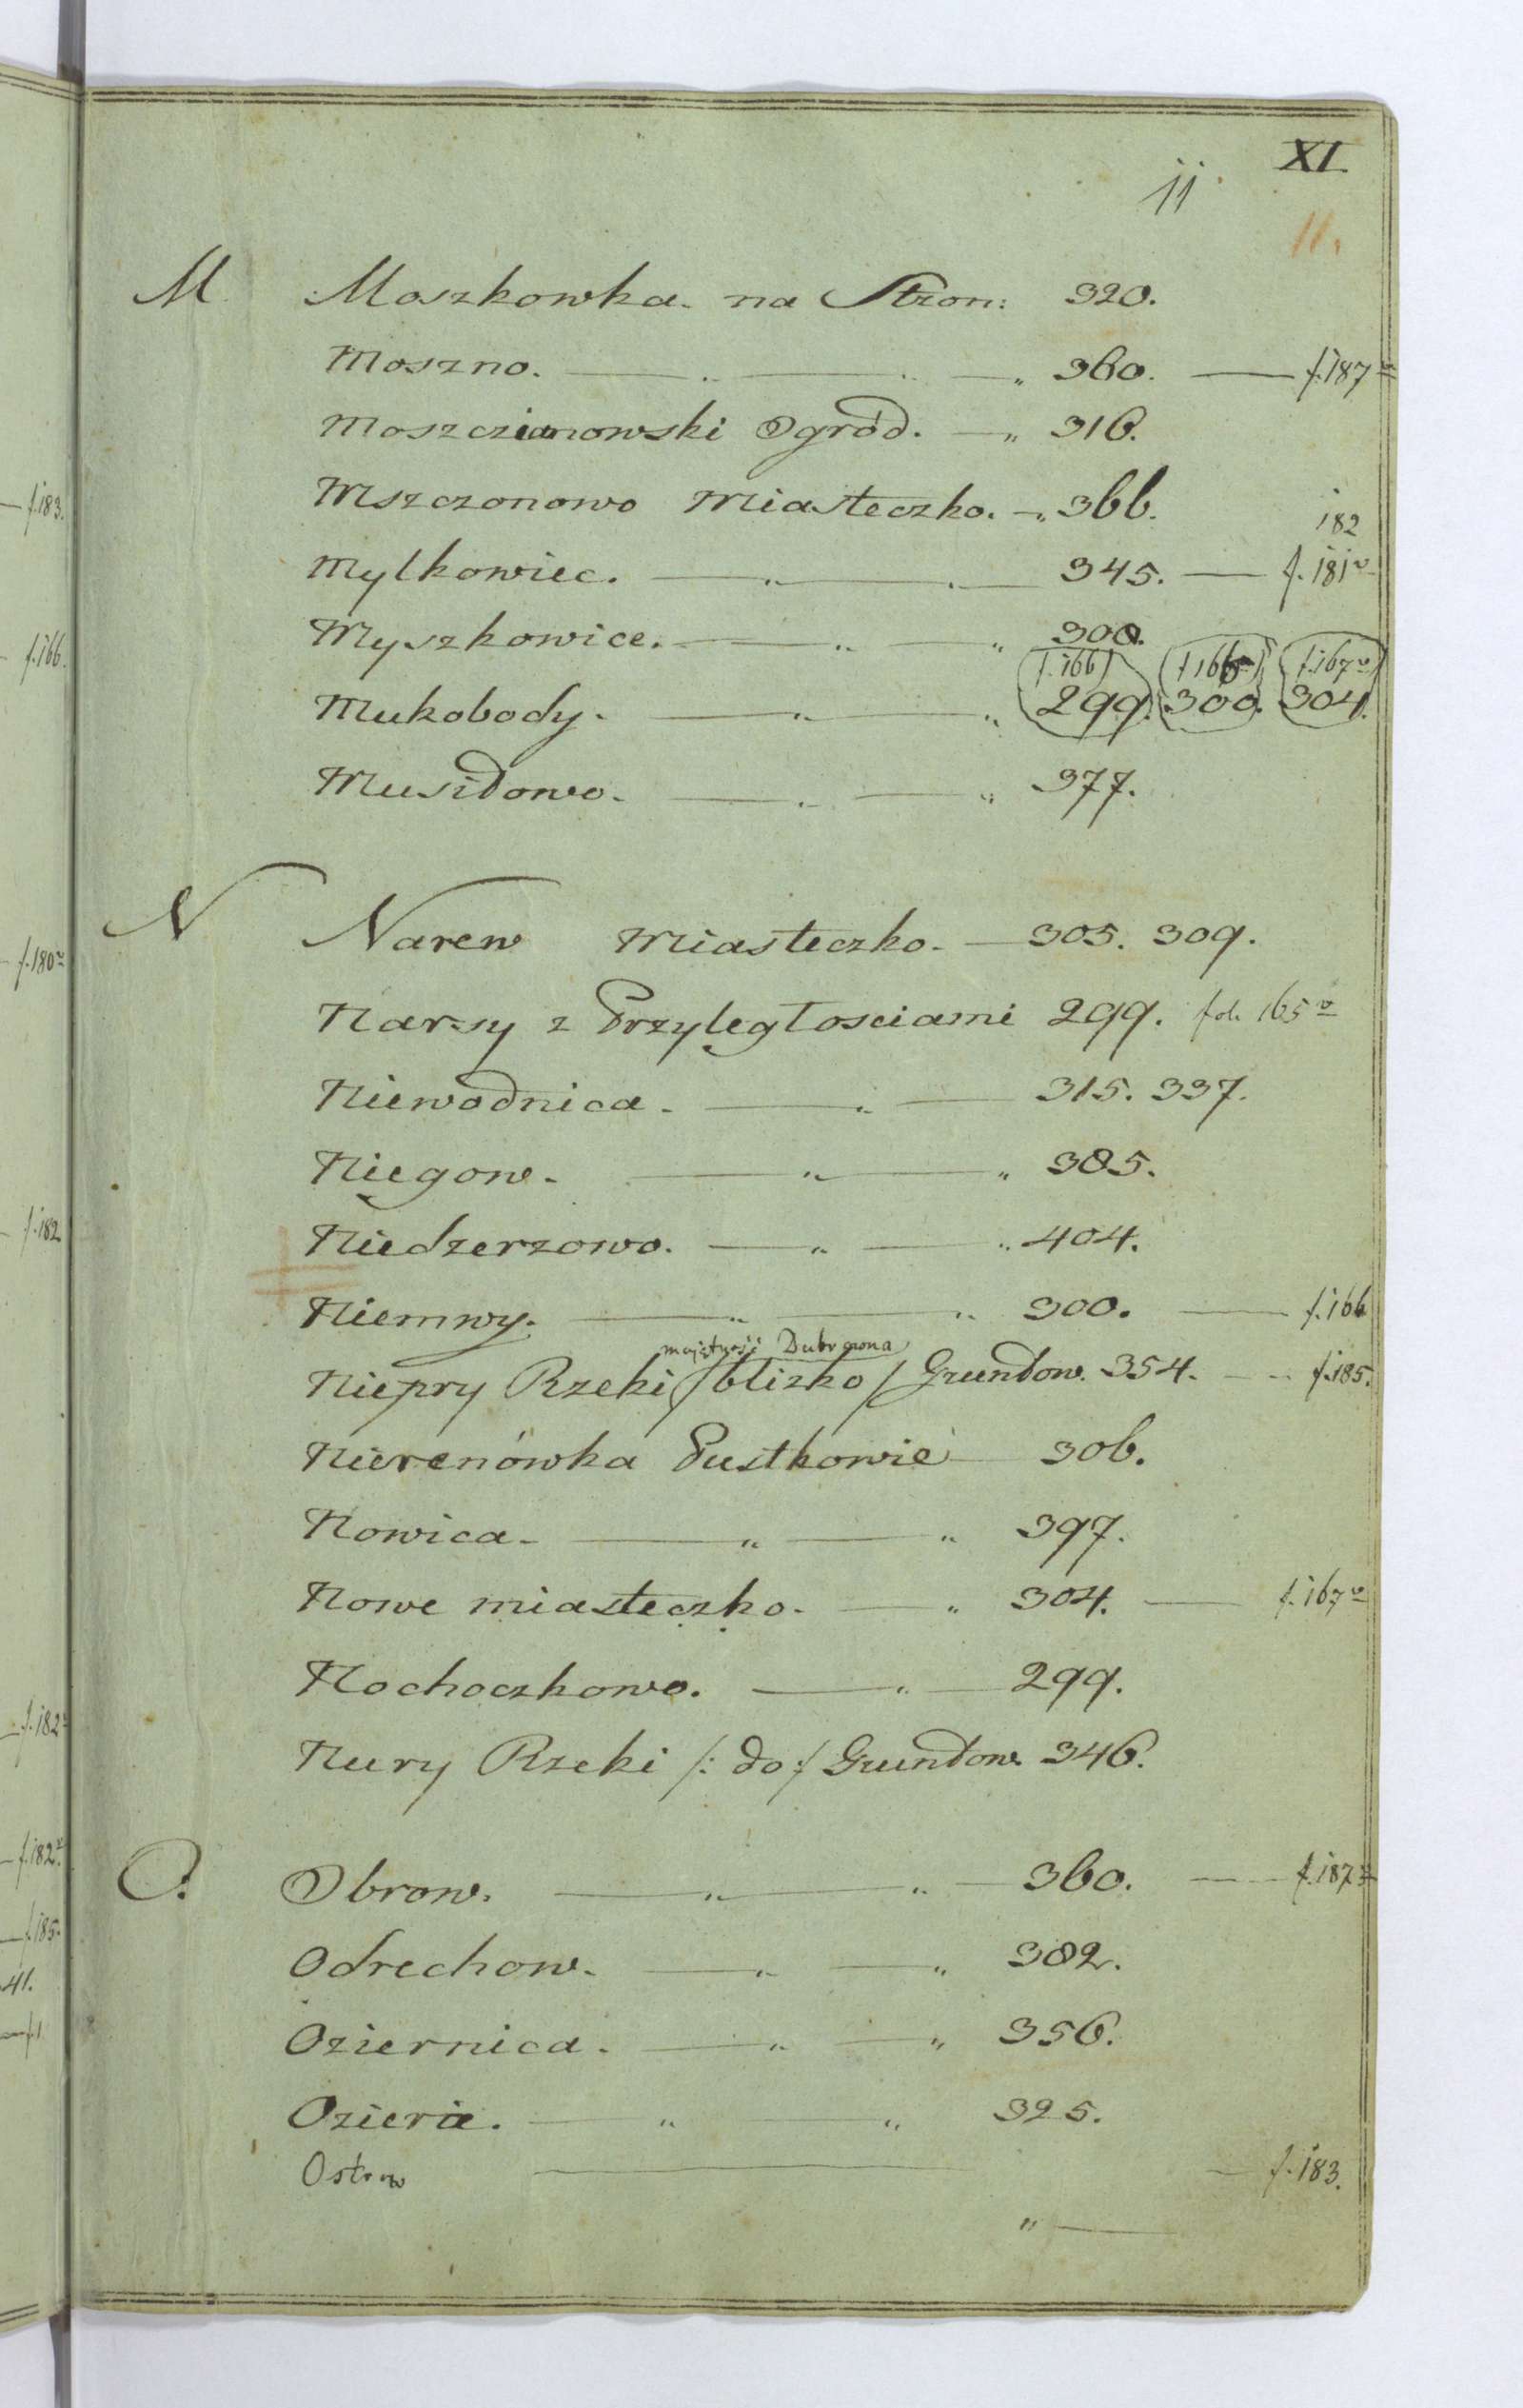 XI.
11.
11.
M Moszkowka. na Stron: 320.
Moszno. — " — " — " 360. — f. 187 v
Moszczianowski Ogród. — " 316.
Mszczonowo Miasteczko. — " 366.
182
Mylkowiec. — " — " — 345. — f. 181 v
Myszkowice. — " — " 300.
f. 166 f 166 v f. 167 v
Mukobody. — " — " 299. 300. 304.
Musidowo. — " — " 377.
N Narew Miasteczko. — 305. 309.
Narsy z Przyległosciami 299. fol. 165 v
Niewodnica. — " — 315. 337.
Niegow. — " — " 385.
Niedzerzowo. — " — " 404.
Niemwy. — " — " 300. — f. 166
majętność Dubrowna
Niepry Rzeki / blizko / Gruntow. 354. — f. 185.
Nierenówka Pustkowie — 306.
Nowica. — " — " 397.
Nowe miasteczko. — " 304. — f. 167 v
Nochoczkowo. — " — 299.
Nury Rzeki /: do :/ Gruntow. 346.
O. Obrow. — " — " — 360. — f. 187 v
Odrechow. — " — " 382.
Oziernica. — " — " 356.
Ozierie. — " " 325.
Ostrow — — f. 183.
" —
f. 183.
f. 166.
f. 180 v
f. 182
f. 182
f. 182 v
f. 185.
41.